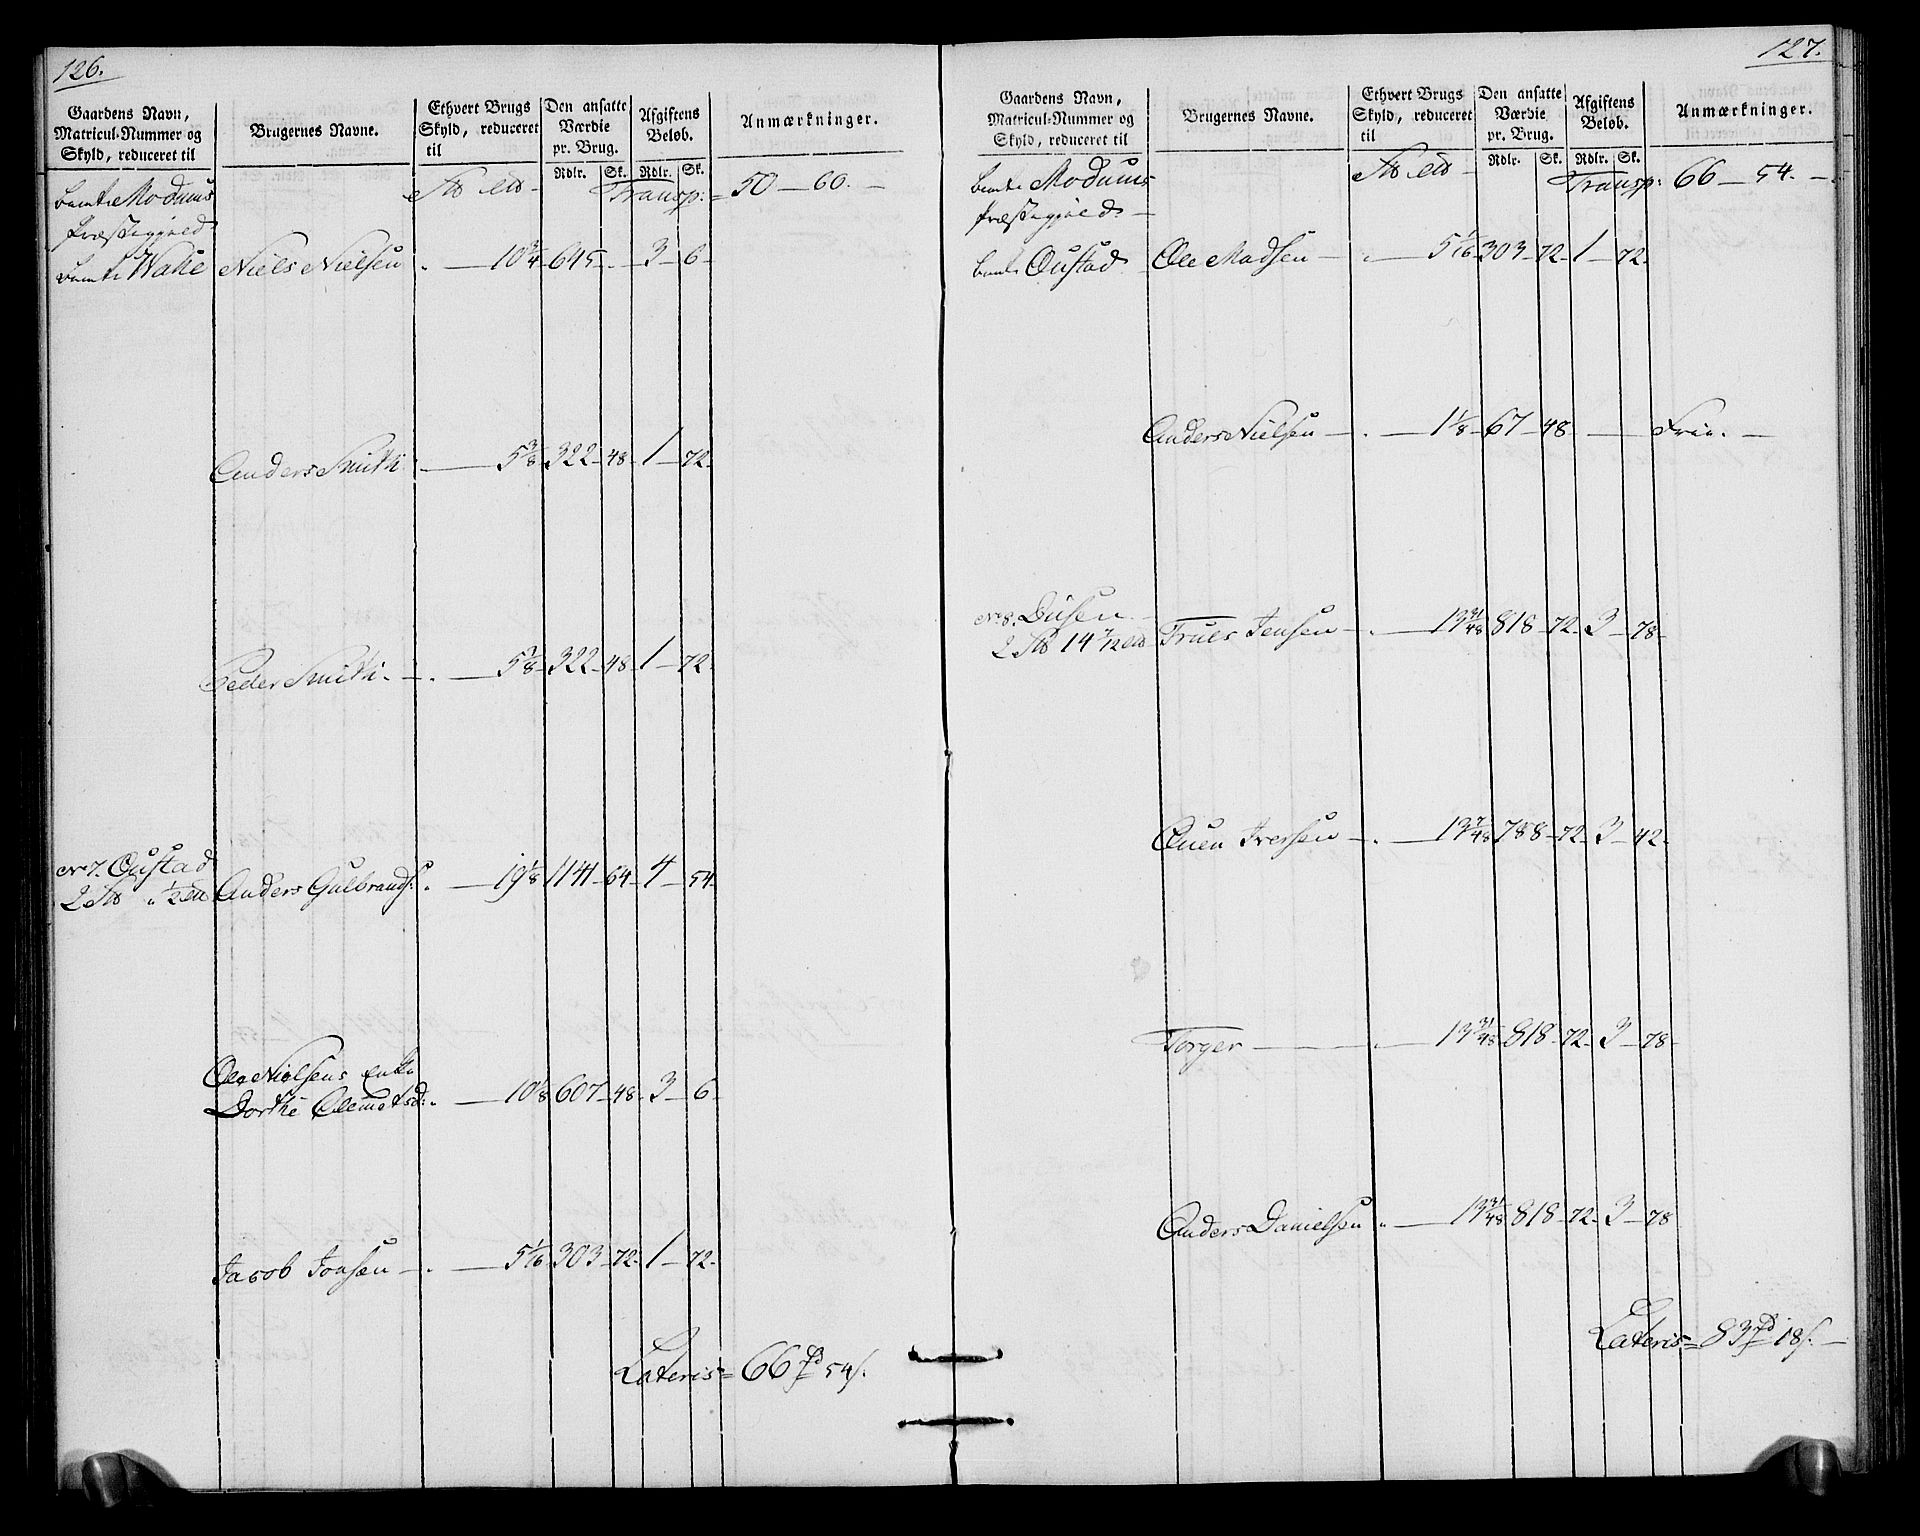 126.
Gaardens Navn,
Matricul-Nummer og
Skyld, reduceret til
Brugernes Navne.
Ethvert Brugs
Skyld, reduceret
til
Den ansatte
Værdie
pr. Brug.
Rdlr. Sk.
Afgiftens
Beløb.
Rdlr. Sk.
Anmærkninger.
Modums Transp: = 50 — 60. —
Præstegjæld
Wake Niels Nielsen . — 10 3/4 — 645 — . — 3 — 6 —
Anders Smith . — 5 3/8 — 322 — 48 — 1 — 72 —
Peder Smith . — . — 5 3/8 — 322 — 48 — 1 — 72 —
No 7. Oustad
2 Anders Gulbrands: . — 19 1/8 — 1141 — 64 — 4 — 54 —
Ole Nielsens Enke
Dorthe Clemetsd: . — 10 1/8 — 607 — 48 — 3 — 6 —
Jacob Jonsen — . — 5 1/16 — 303 — 72 — 1 — 72 —
Lateris = 66 rd 54 s.
127.
Gaardens Navn,
Matricul-Nummer og
Skyld, reduceret til
Brugernes Navne.
Ethvert Brugs
Skyld, reduceret
til
Den ansatte
Værdie
pr. Brug.
Rdlr. Sk.
Afgiftens
Beløb.
Rdlr. Sk.
Anmærkninger.
Modums Transp: 66 — 54. —
Præstegjæld —
Oustad Ole Madsen — . — 5 1/16 — 303 — 72 — 1 — 72 —
Anders Nielsen — . — 1 1/8 — 67 — 48 — Frie. —
No 8. Diisen
2 14 7/12 Truls Jensen — . — 13 31/48 — 818 — 72 — 3 — 78 —
Ouen Iversen — . — 13 7/48 — 788 — 72 — 3 — 42 —
Torger — . — 13 31/48 — 818 — 72 — 3 — 78 —
Anders Danielsen . — 13 31/48 — 818 — 72 — 3 — 78
Lateris = 83 rd 18 s. —